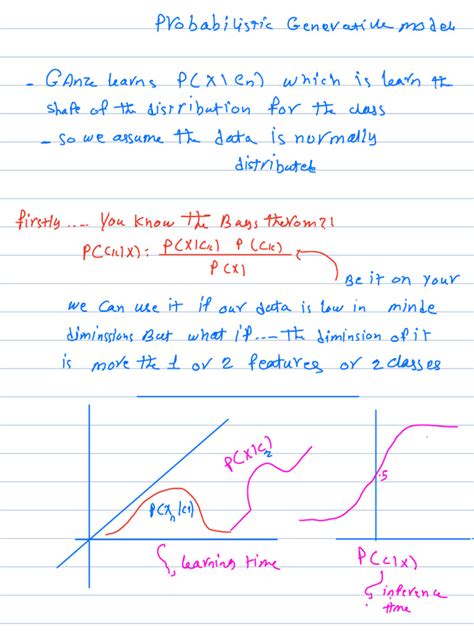 Probabilistic Generative model
- GAnze learns P(X|Cn) which is learn the
shape of the distribution for the class
- so we assume the data is normally
distributed
firstly .... You know the Bays therom?!
P(Ck|X): P(X|Ck) P(Ck)
P(X)
Be it on your
minde
we can use it if our data is low in
diminssions But what if .... the diminsion of it
is more the 1 or 2 features or 2 classes
P(Xn|C1)
P(X|C2
.5
learning time
P(C|X)
inference
time